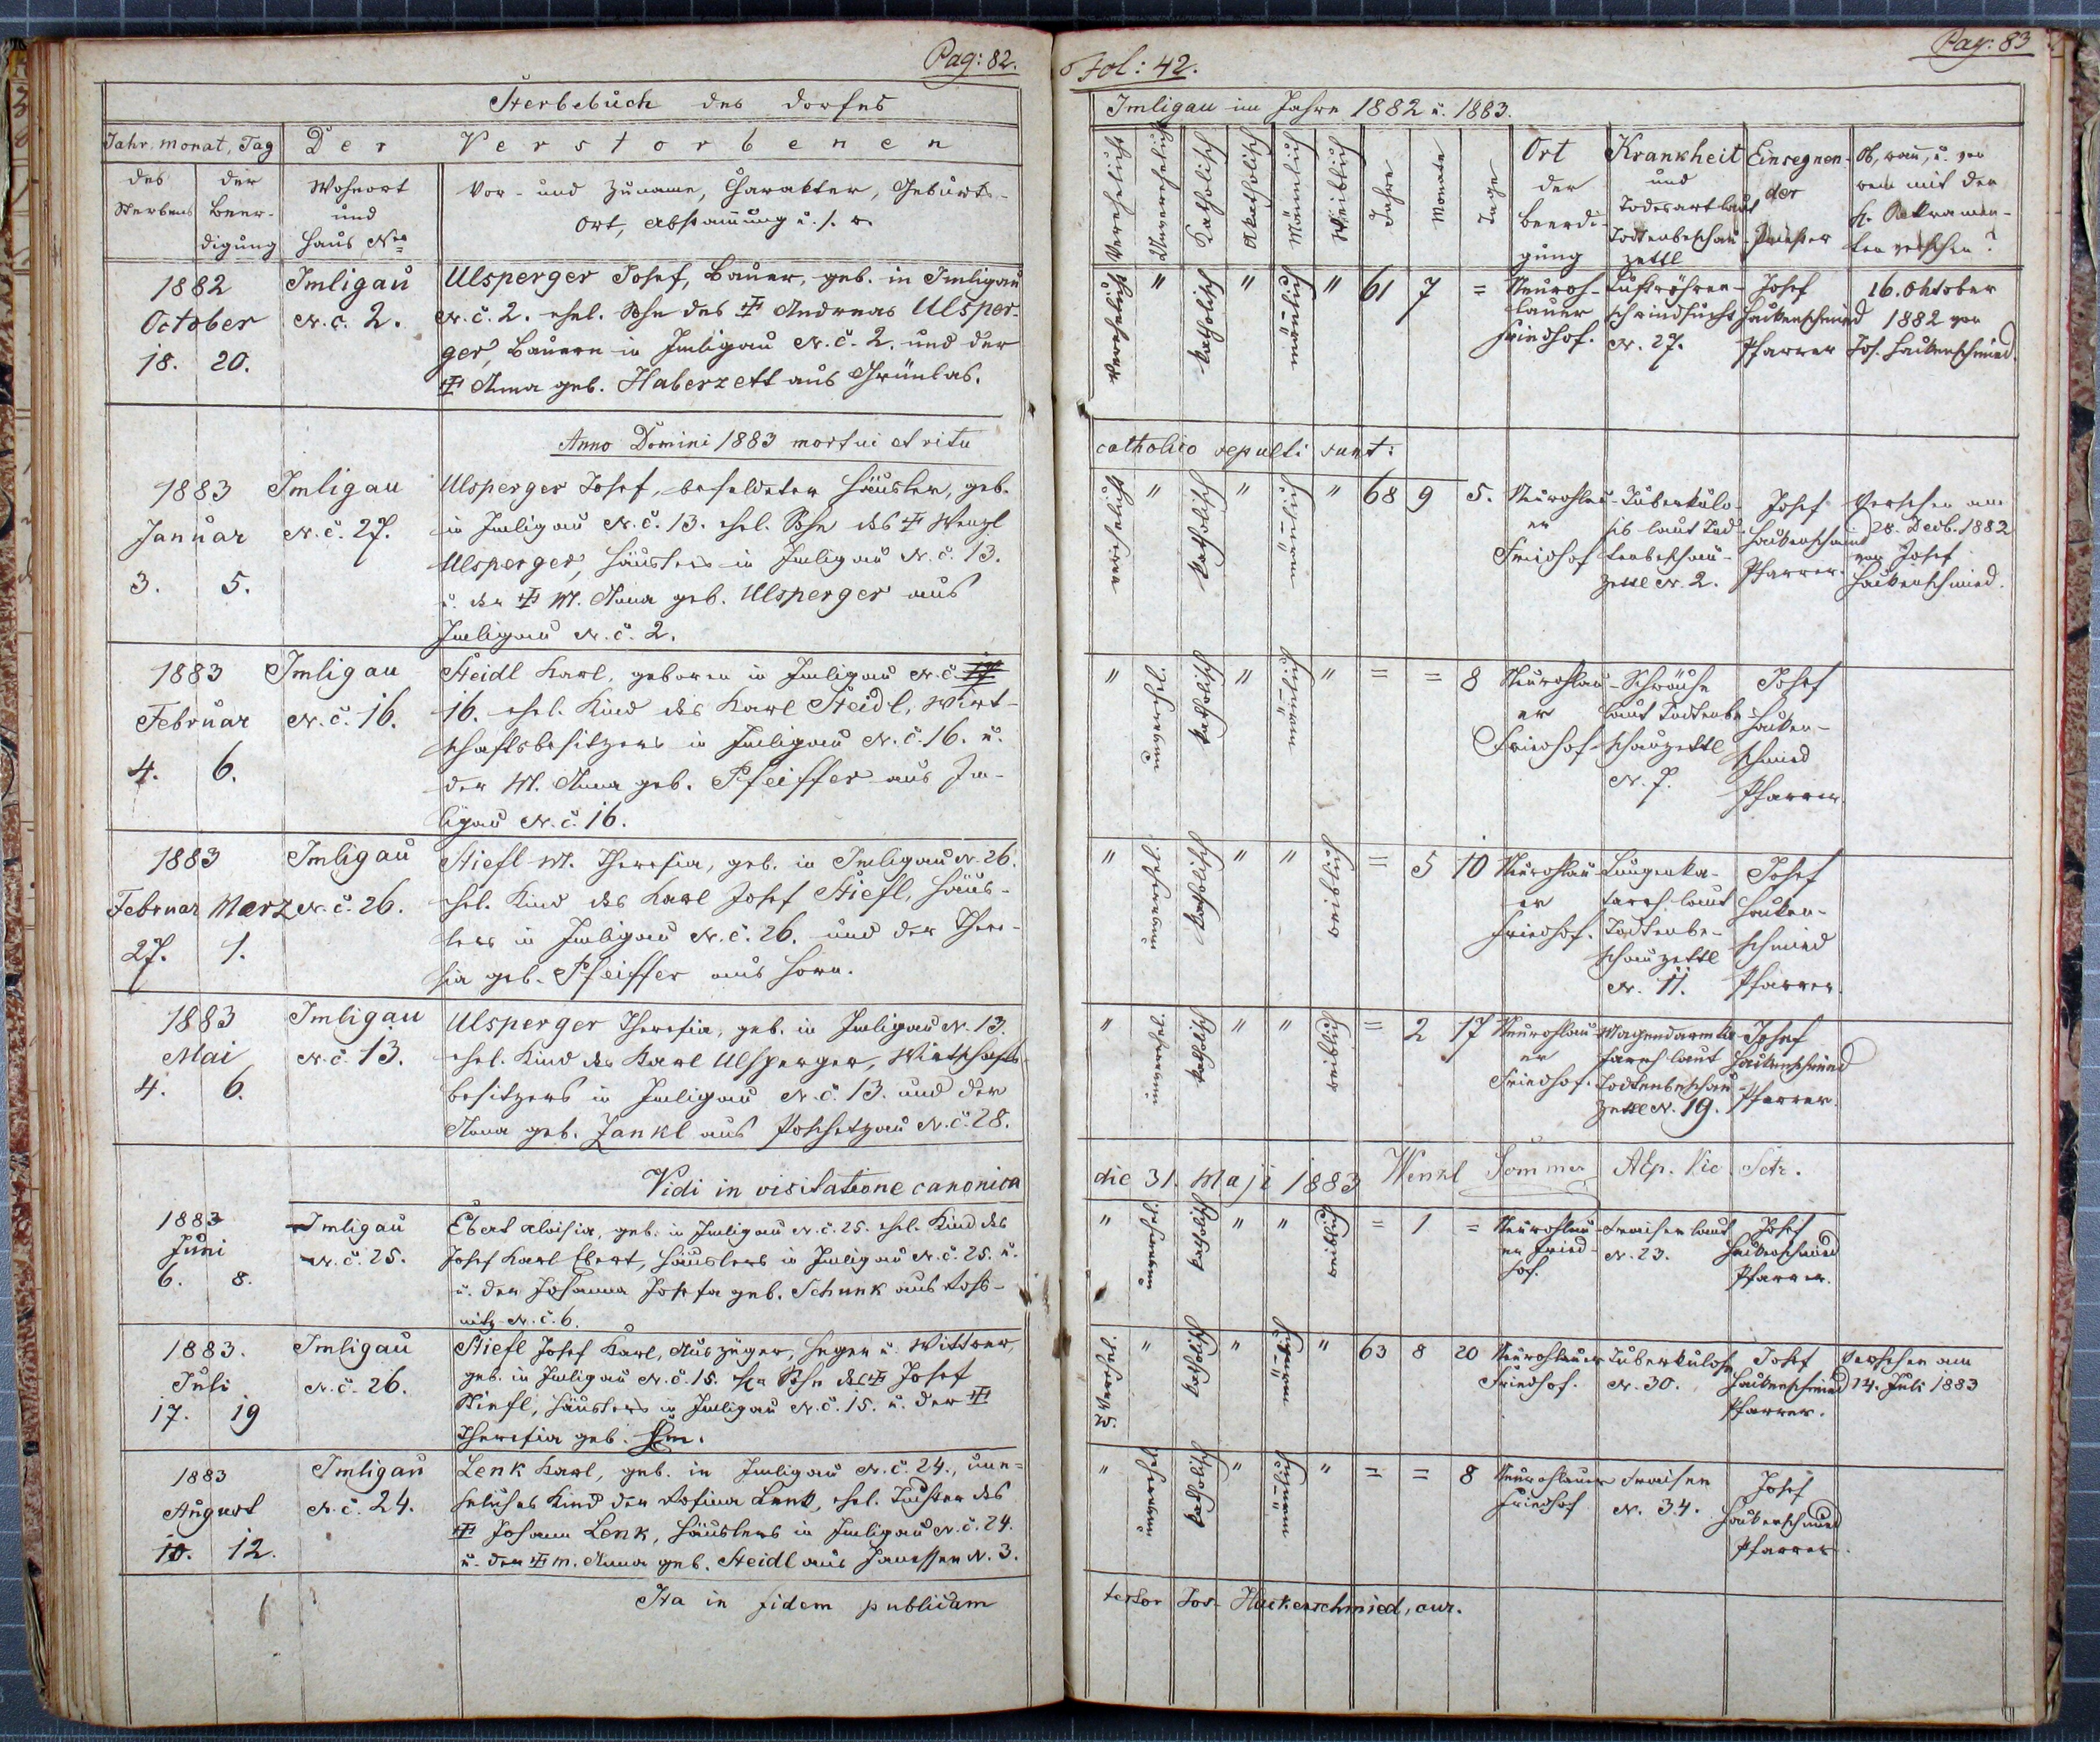 Pag: 82.
Sterbebuch des Dorfes
Jahr, Monat, Tag
Der Verstorbenen
des Sterbens
der Beer-
digung
Wohnort
und
Haus Nro
Vor- und Zuname, Charakter, Geburts-
Ort, Abstammung u. s. w.
1882
October
18. 20.
Imligau
N. c. 2.
Ulsperger Josef, Bauer, geb. in Imligau
N. c. 2. ehel. Sohn des ‡ Andreas Ulsper-
ger, Bauern in Imligau N. c. 2. und der
‡ Anna geb. Haberzett aus Grünlas.
Anno Domini 1883 mortui et ritu
1883
Januar
3. 5.
Imligau
N. c. 27.
Ulsperger Josef, befeldeter Häusler, geb.
in Imligau N. c. 13. ehel. Sohn des ‡ Wenzl
Ulsperger, Häuslers in Imligau N. c. 13.
u. der ‡ M. Anna geb. Ulsperger aus
Imligau N. c. 2.
1883
Februar
4. 6.
Imligau
N. c. 16.
Steidl Karl, geboren in Imligau N. c.
16. ehel. Kind des Karl Steidl, Wirt-
schaftsbesitzers in Imligau N. c. 16. u.
der M. Anna geb. Pfeiffer aus Im-
ligau N. c. 16.
1883
Februar März
27. 1.
Imligau
N. c. 26.
Stiefl M. Theresia, geb. in Imligau N. 26.
ehel. Kind des Karl Josef Stiefl, Häus-
lers in Imligau N. c. 26. und der There-
sia geb. Pfeiffer aus Horn.
1883
Mai
4. 6.
Imligau
N. c. 13.
Ulsperger Theresia, geb. in Imligau N. 13.
ehel. Kind des Karl Ulsperger, Wirtschafts-
besitzers in Imligau N. c. 13. und der
Anna geb. Zankl aus Poschetzau N. c. 28.
Vidi in visitatione canonica
1883
Juni
6. 8.
Imligau
N. c. 25.
Ebert Aloisia, geb. in Imligau N. c. 25. ehel. Kind des
Josef Karl Ebert, Häuslers in Imligau N. c. 25. u.
u. der Johanna Josefa geb. Schunk aus Ross-
nitz N. c. 6.
1883.
Juli
17. 19
Imligau
N. c. 26.
Stiefl Josef Karl, Auszüger, Heger u. Wittwer,
geb. in Imligau N. c. 15. Sohn des ‡ Josef
Stiefl, Häuslers in Imligau N. c. 15. u. der ‡
Theresia geb.
1883
August
10. 12.
Imligau
N. c. 24.
Lenk Karl, geb. in Imligau N. c. 24., une-
heliches Kind der Rosina Lenk, ehel. Tochter des
‡ Johann Lenk, Häuslers in Imligau N. c. 24.
u. der ‡ M. Anna geb. Steidl aus Janessen N. 3.
Ita in fidem publicam
Fol: 42.
Pag: 83
Imligau im Jahre 1882 u. 1883.
Verehelicht
Unverehelicht
Katholisch
Akatholisch
Männlich
Weiblich
Jahre
Monate
Tage
Ort
der
Beerdi-
gung
Krankheit
und
Todesart laut
Todtenbeschau-
zettl
Einsegnen-
der
Priester
Ob, wann, u. von
wem mit den
h. Sakramen-
ten versehen?
verehelicht " katholisch " männlich " 61 7 =
Neuroh-
lauer
Friedhof.
Luftröhren-
schwindsucht
N. 27.
Josef
Hackenschmied
Pfarrer
16. Oktober
1882 von
Jos. Hackenschmied.
catholico sepulti sunt:
verehelicht " katholisch " männlich " 68 9 5.
Neurohlau-
er
Friedhof
Tuberkulo-
sis laut Tod-
tenbeschau-
zettl N. 2.
Josef
Hackenschmied
Pfarrer.
Versehen am
28. Decb. 1882
von Josef
Hackenschmied.
" unverehel. katholisch " männlich " = = 8
Neurohlau-
er
Friedhof
Schwäche
laut Todtenbe-
schauzettl
N. 7.
Josef
Hacken-
schmied
Pfarrer.
" unverehel. katholisch " " weiblich = 5 10
Neurohlau-
er
Friedhof.
Lungenka-
tarrh laut
Todtenbe-
schauzettl
N. 11.
Josef
Hacken-
schmied
Pfarrer.
" unverehel. katholisch " " weiblich = 2 17
Neurohlau-
er
Friedhof.
Magendarmka-
tarrh laut
Todtenbeschau-
zettl N. 19.
Josef
Hackenschmied
Pfarrer.
die 31. Maji 1883 Wenzl Sommer
" unverehel. katholisch " " weiblich = 1 =
Neurohlau-
er Fried-
hof.
Fraisen laut
N. 23.
Josef
Hackenschmied
Pfarrer.
" katholisch " männlich " 63 8 20
Neurohlauer
Friedhof.
Tuberkulose
N. 30.
Josef
Hackenschmied
Pfarrer.
Versehen am
14. Juli 1883
" unverehel. katholisch " männlich " = = 8
Neurohlauer
Friedhof
Fraisen
N. 34.
Josef
Hackenschmied
Pfarrer.
testor Jos. Hackenschmied, cur.